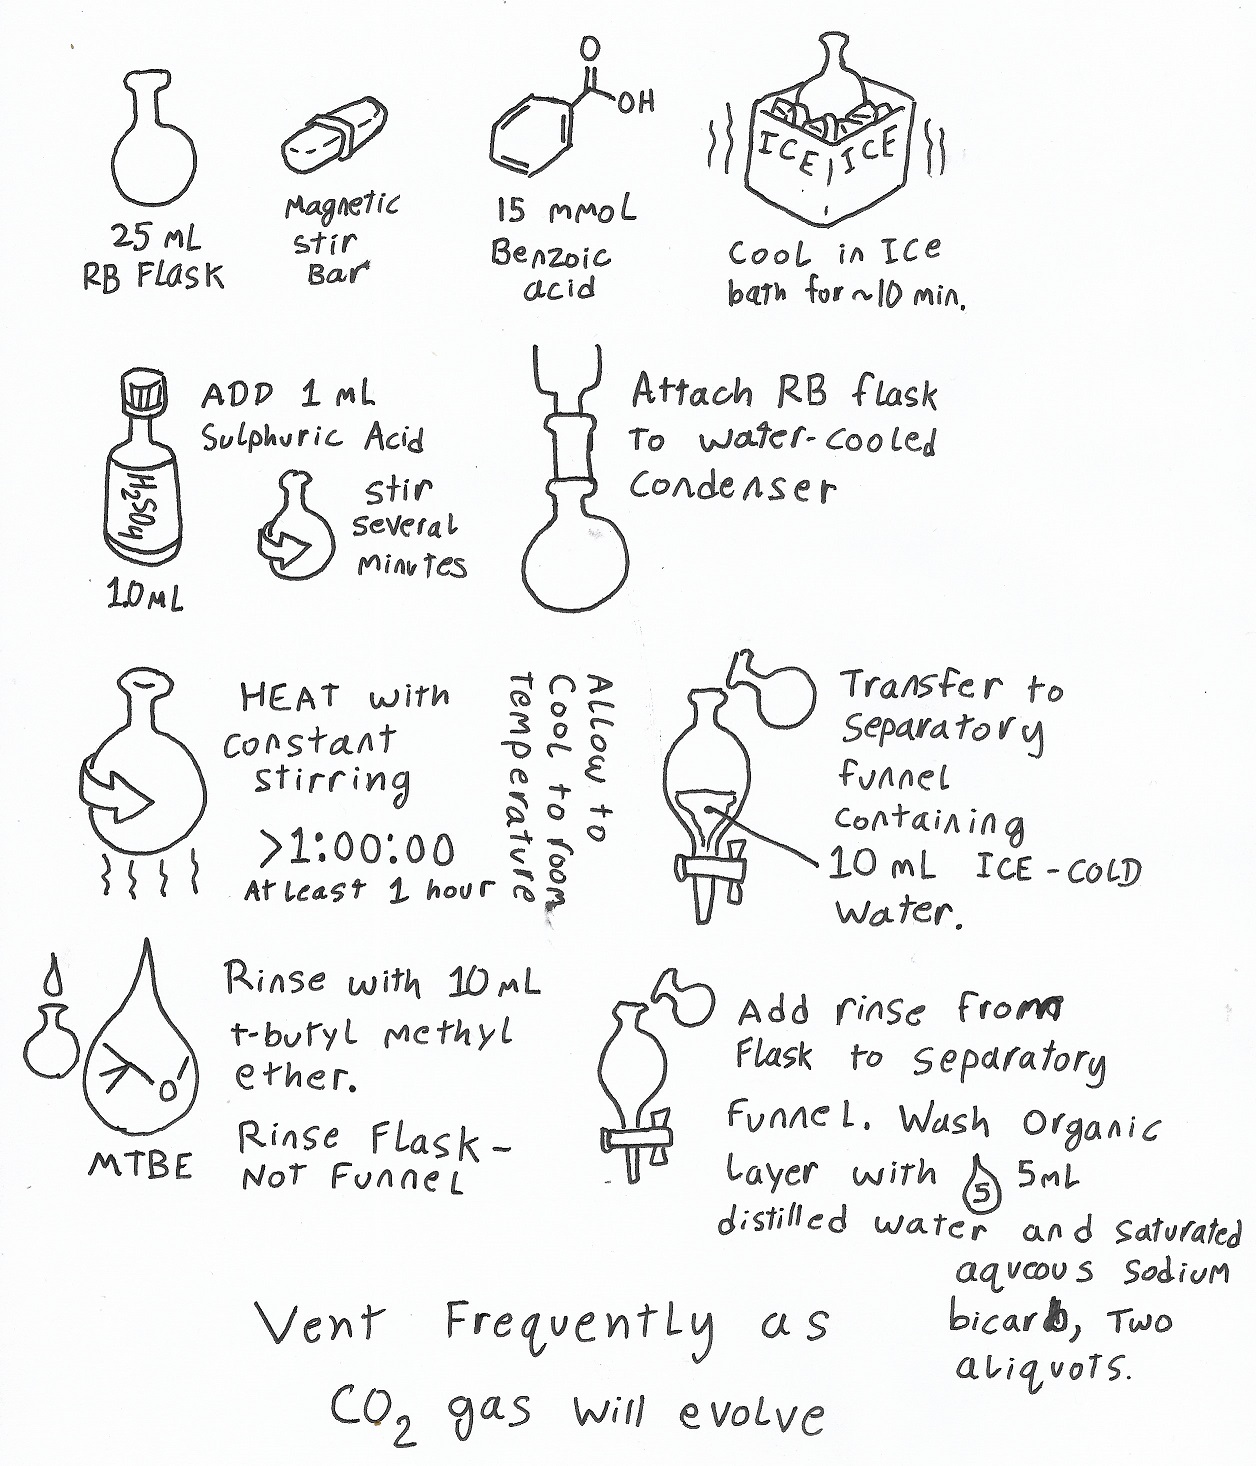 25 mL
RB Flask
Magnetic
stir
Bar
O
OH
15 mmol
Benzoic
acid
ICE ICE
Cool in Ice
bath for ~10 min.
ADD 1 mL
Sulphuric Acid
H2SO4
1.0 mL
stir
several
minutes
Attach RB flask
to water-cooled
condenser
HEAT with
constant
stirring
>1:00:00
At least 1 hour
Allow to
Cool to room
temperature
Transfer to
separatory
funnel
containing
10 mL ICE-COLD
water.
O
MTBE
Rinse with 10 mL
t-butyl methyl
ether.
Rinse Flask-
Not Funnel
Add rinse from
flask to separatory
funnel. Wash organic
layer with 5 5mL
distilled water and saturated
aqueous sodium
bicarb, two
aliquots.
Vent Frequently as
CO2 gas will evolve